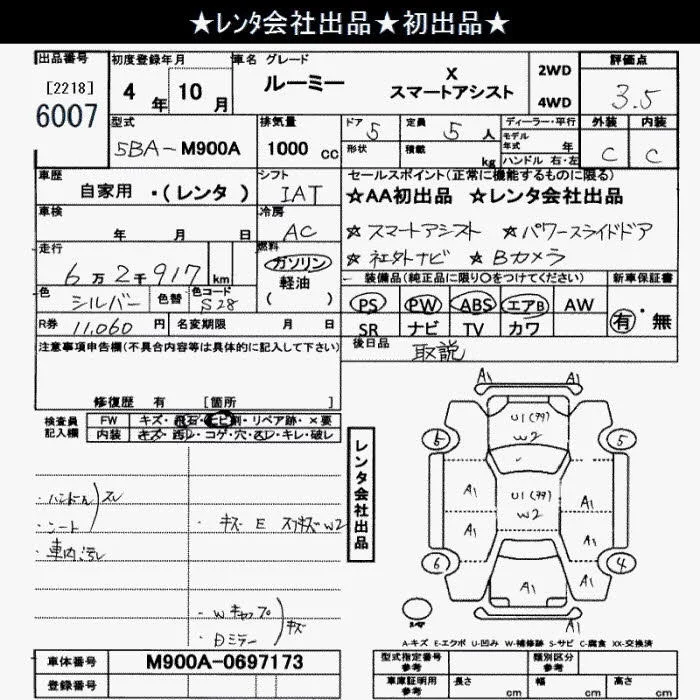 ★レンタ会社出品★初出品★
出品番号 初度登録年月 車名 グレード 2WD 評価点
[2218] 4年 10月 ルーミー X スマートアシスト 4WD 3.5
6007
型式 排気量 ドア 5 定員 5人 ディーラー・平行 外装 内装
5BA-M900A 1000cc 形状 積載 kg モデル年式 年 C C
ハンドル 右・左
車歴 シフト セールスポイント(正常に機能するものに限る)
自家用 ・(レンタ) IAT ★AA初出品 ★レンタ会社出品
車検 年 月 日 冷房 AC ☆スマートアシスト ☆パワースライドドア
走行 6万2千917km 燃料 ガソリン ☆社外ナビ ☆Bカメラ
軽油
( )
装備品(純正品に限り○をつけてください) 新車保証書
色 シルバー 色替 色コード S28 PS PW ABS エアB AW 有・無
R券 11,060円 名変期限 月 日 SR ナビ TV カワ
注意事項申告欄(不具合内容等は具体的に記入して下さい) 後日品 取説
修復歴 有 [箇所 ]
検査員記入欄 FW キズ・飛石・ヒビ割・リペア跡・×要
内装 キズ・汚レ・コゲ・穴・スレ・キレ・破レ
レンタ会社出品
・ハンドル スレ
・シート
・車内汚レ
・キズ E スリキズW2
・Wキャップ キズ
・Dミラー
A1 A1
U1
W2
5 5
A1 U1 A1
W2
A1 A1
6 4
A1
A1 A1
A-キズ E-エクボ U-凹み W-補修跡 S-サビ C-腐食 XX-交換済
車体番号 M900A-0697173 型式指定番号 参考 類別区分 参考
登録番号 車庫証明用 参考 長さ cm 幅 cm 高さ cm